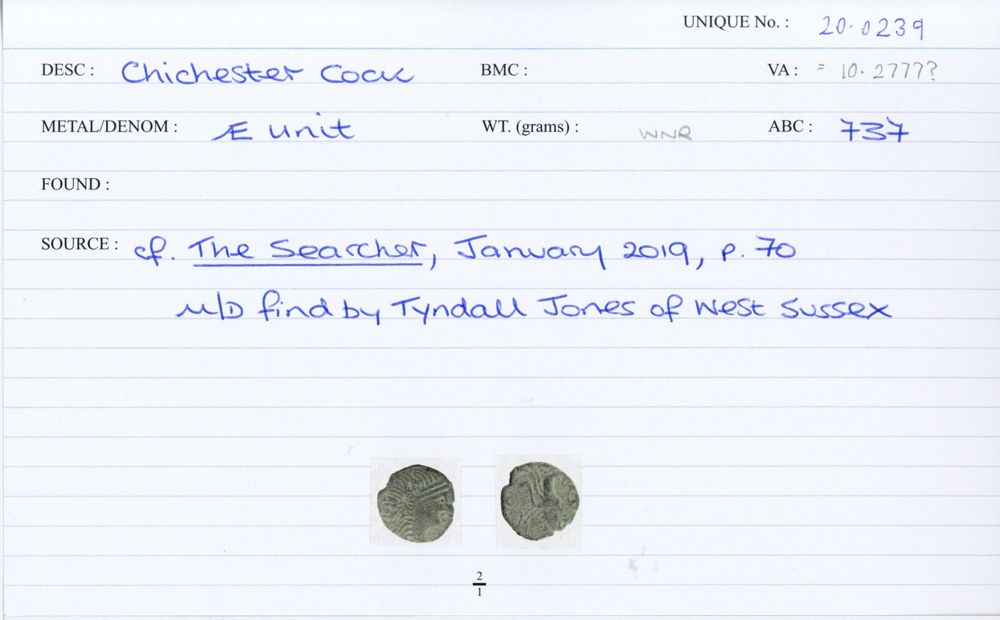 UNIQUE No. : 20.0239
DESC : Chichester Cock BMC : VA : = 10.2777?
METAL/DENOM : Æ unit WT. (grams) : WNR ABC : 737
FOUND :
SOURCE : cf. The Searcher, January 2019, p. 70
M/D find by Tyndall Jones of West Sussex
2
1